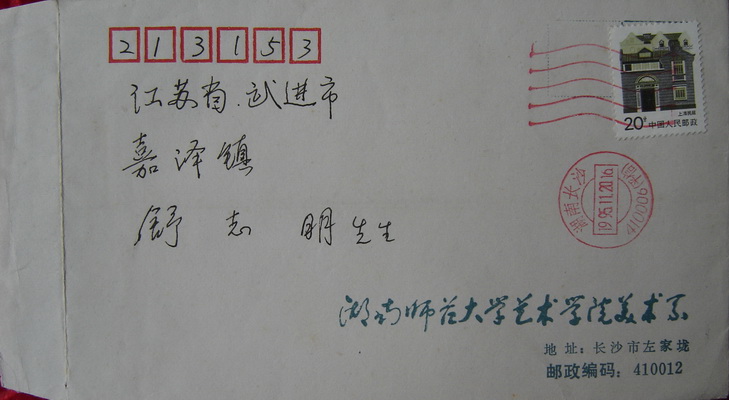 213153
江苏省.武进市
嘉泽镇
舒志明先生
上海民居
20分 中国人民邮政
湖南长沙
1995.11.20.16
410006
湖南师范大学艺术学院美术系
地址:长沙市左家垅
邮政编码:410012